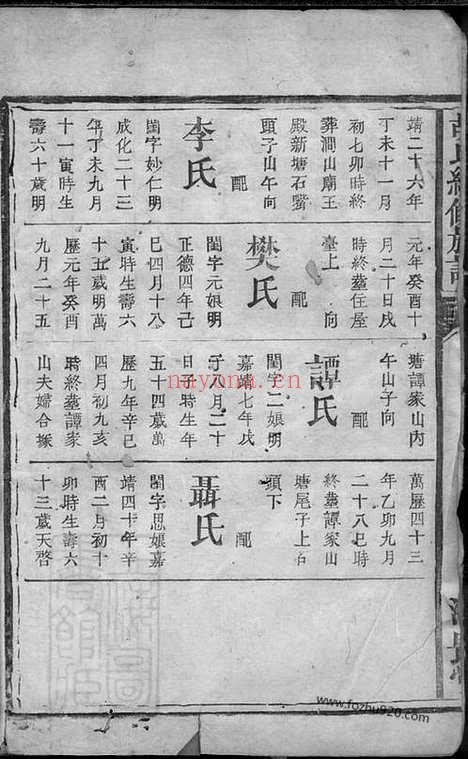 靖二十六年
丁未十一月
初七卯時終
葬澗山廟王
殿新塘石嘴
頭子山午向
配
李氏
閨字妙仁明
成化二十三
年丁未九月
十一寅時生
壽六十歲明
元年癸酉十
月二十日戌
時終葢住屋
臺上 向
配
樊氏
閨字元娘明
正德四年己
巳四月十八
寅時生壽六
十五歲明萬
歷元年癸酉
九月二十五
塘譚家山內
午山子向
配
譚氏
閨字二娘明
嘉靖七年戊
子八月二十
日子時生年
五十四歲萬
歷九年辛巳
四月初九亥
時終葢譚家
山夫婦合塚
萬歷四十三
年乙卯九月
二十八巳時
終葢譚家山
塘尾子上右
頭下
配
聶氏
閨字思娘嘉
靖四十年辛
酉二月初十
卯時生壽六
十三歲天啓
nayona.cn
www.fozhu920.com